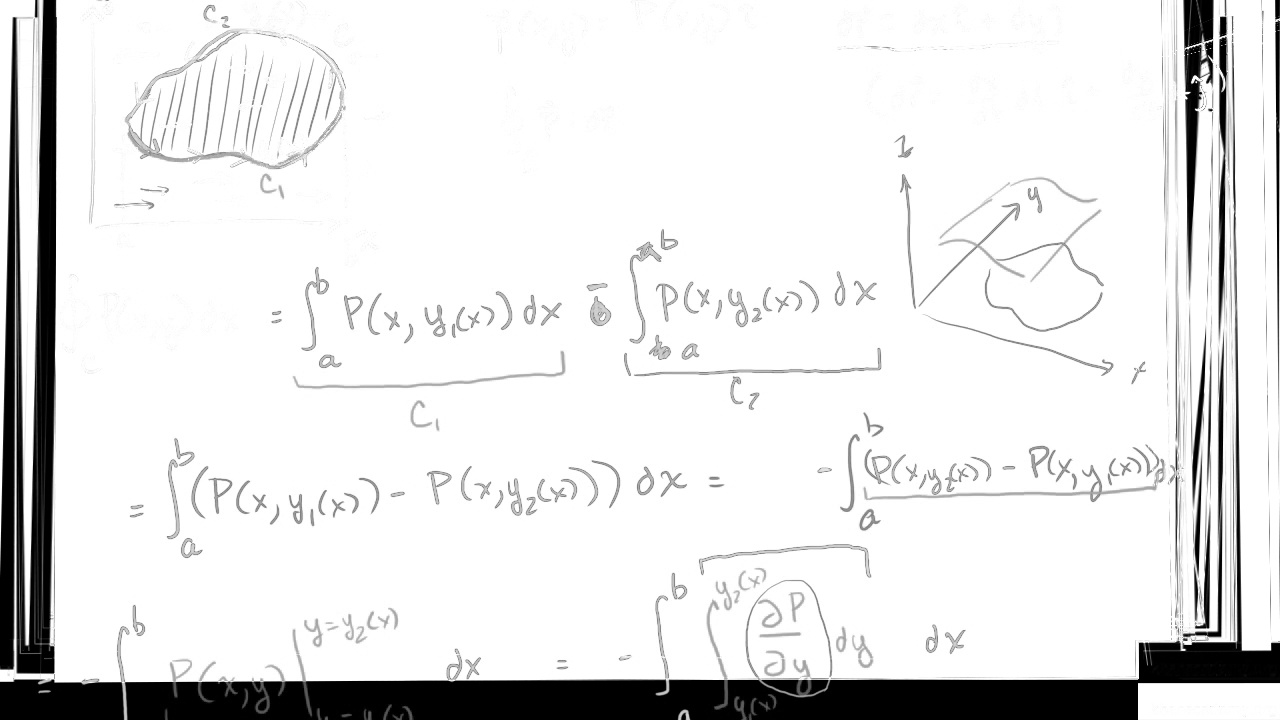 C₂
C₁
z
y
x
= ∫ₐᵇ P(x, y₁(x)) dx - ∫ₐᵇ P(x, y₂(x)) dx
C₁
C₂
= ∫ₐᵇ (P(x, y₁(x)) - P(x, y₂(x))) dx = - ∫ₐᵇ (P(x, y₂(x)) - P(x, y₁(x))) dx
= - ∫ᵇ P(x,y) | y=y₂(x) y=y₁(x) dx = - ∫ₐᵇ ∫ y₁(x) y₂(x) ∂P/∂y dy dx